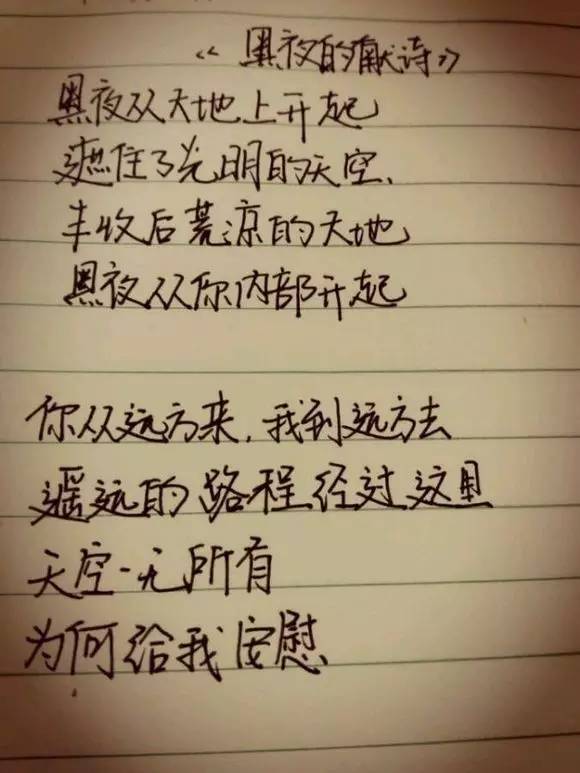 《黑夜的献诗》
黑夜从天地上开起
遮住了光明的天空、
丰收后荒凉的天地
黑夜从你内部开起
你从远方来,我到远方去
遥远的路程经过这里
天空一无所有
为何给我安慰